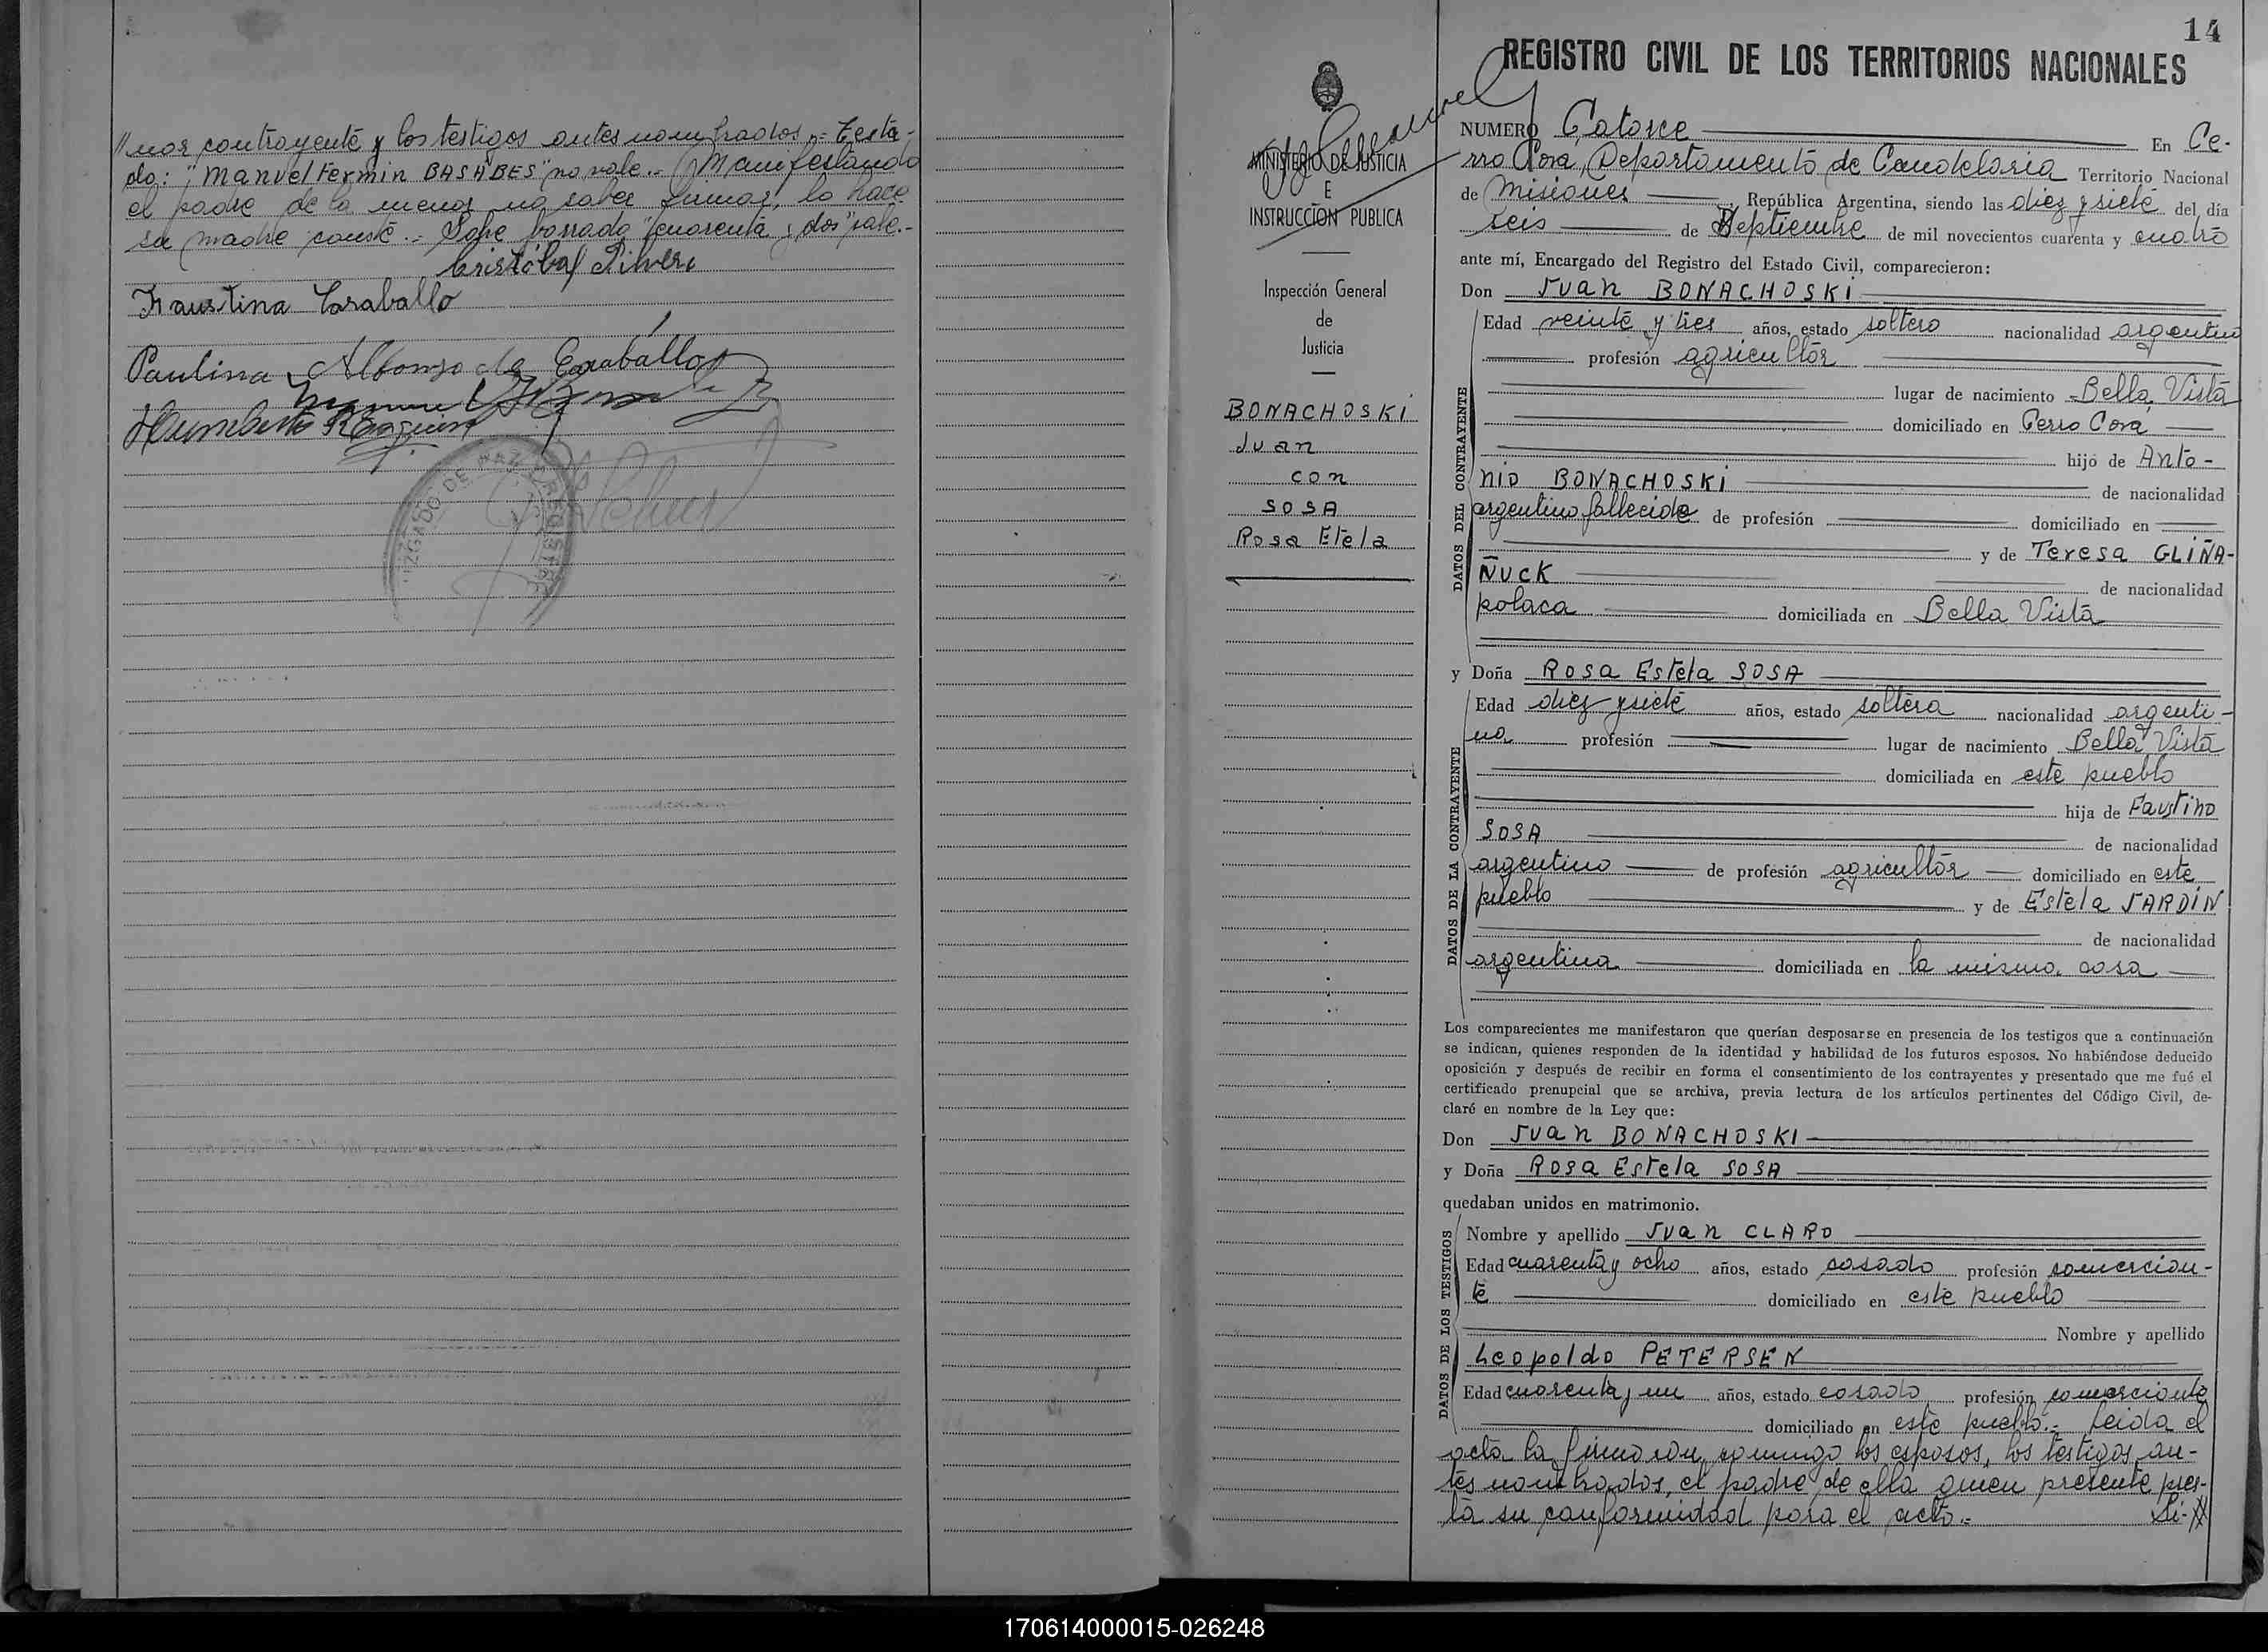 "nor contrayente y los testigos antes nombrados.= Testa-
do: "Manuel Fermin BASABES" no vale.- Manifestando
el padre de la menor no saber firmar, lo hace
su madre conste.- Sobre borrado "cuarenta y dos" vale.-
Cristóbal
Faustina Caraballo
Paulina Alfonzo de Caraballo
Humberto
14
REGISTRO CIVIL DE LOS TERRITORIOS NACIONALES
MINISTERIO DE JUSTICIA
E
INSTRUCCIÓN PUBLICA
Inspección General
de
Justicia
BONACHOSKI
Juan
con
SOSA
Rosa Etela
NUMERO Catorce En Ce-
rro Corá, Departamento de Candelaria Territorio Nacional
de Misiones, República Argentina, siendo las diez y siete del día
seis de Septiembre de mil novecientos cuarenta y cuatro
ante mí, Encargado del Registro del Estado Civil, comparecieron:
Don Juan BONACHOSKI
DATOS DEL CONTRAYENTE
Edad veinte y tres años, estado soltero nacionalidad argentino
profesión agricultor
lugar de nacimiento Bella Vista
domiciliado en Cerro Corá
hijo de Anto-
nio BONACHOSKI de nacionalidad
argentino fallecido de profesión domiciliado en
y de Teresa GLIÑA-
ÑUCK de nacionalidad
polaca domiciliada en Bella Vista
y Doña Rosa Estela SOSA
DATOS DE LA CONTRAYENTE
Edad diez y siete años, estado soltera nacionalidad argenti-
na profesión lugar de nacimiento Bella Vista
domiciliada en este pueblo
hija de Faustino
SOSA de nacionalidad
argentino de profesión agricultor domiciliado en este
pueblo y de Estela JARDIN
de nacionalidad
argentina domiciliada en la misma casa
Los comparecientes me manifestaron que querían desposarse en presencia de los testigos que a continuación
se indican, quienes responden de la identidad y habilidad de los futuros esposos. No habiéndose deducido
oposición y después de recibir en forma el consentimiento de los contrayentes y presentado que me fué el
certificado prenupcial que se archiva, previa lectura de los artículos pertinentes del Código Civil, de-
claré en nombre de la Ley que:
Don Juan BONACHOSKI
y Doña Rosa Estela SOSA
quedaban unidos en matrimonio.
DATOS DE LOS TESTIGOS
Nombre y apellido Juan CLARO
Edad cuarenta y ocho años, estado casado profesión comercian-
te domiciliado en este pueblo
Nombre y apellido
Leopoldo PETERSEN
Edad cuarenta y un años, estado casado profesión comerciante
domiciliado en este pueblo.- Leida el
acta la firmaron conmigo los esposos, los testigos an-
tes nombrados, el padre de ella quien presente pres-
ta su conformidad para el acto.- Si-//
170614000015-026248